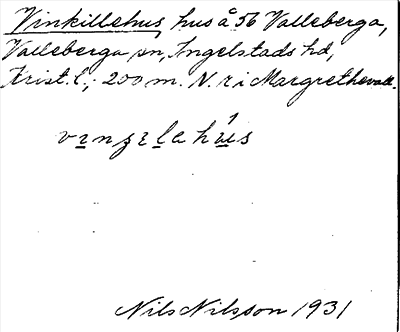 Vinkillehus, hus å 56 Valleberga,
Valleberga sn, Ingelstads hd,
Krist. l.; 200 m. N. r i Margrethevall.
Nils Nilsson 1931